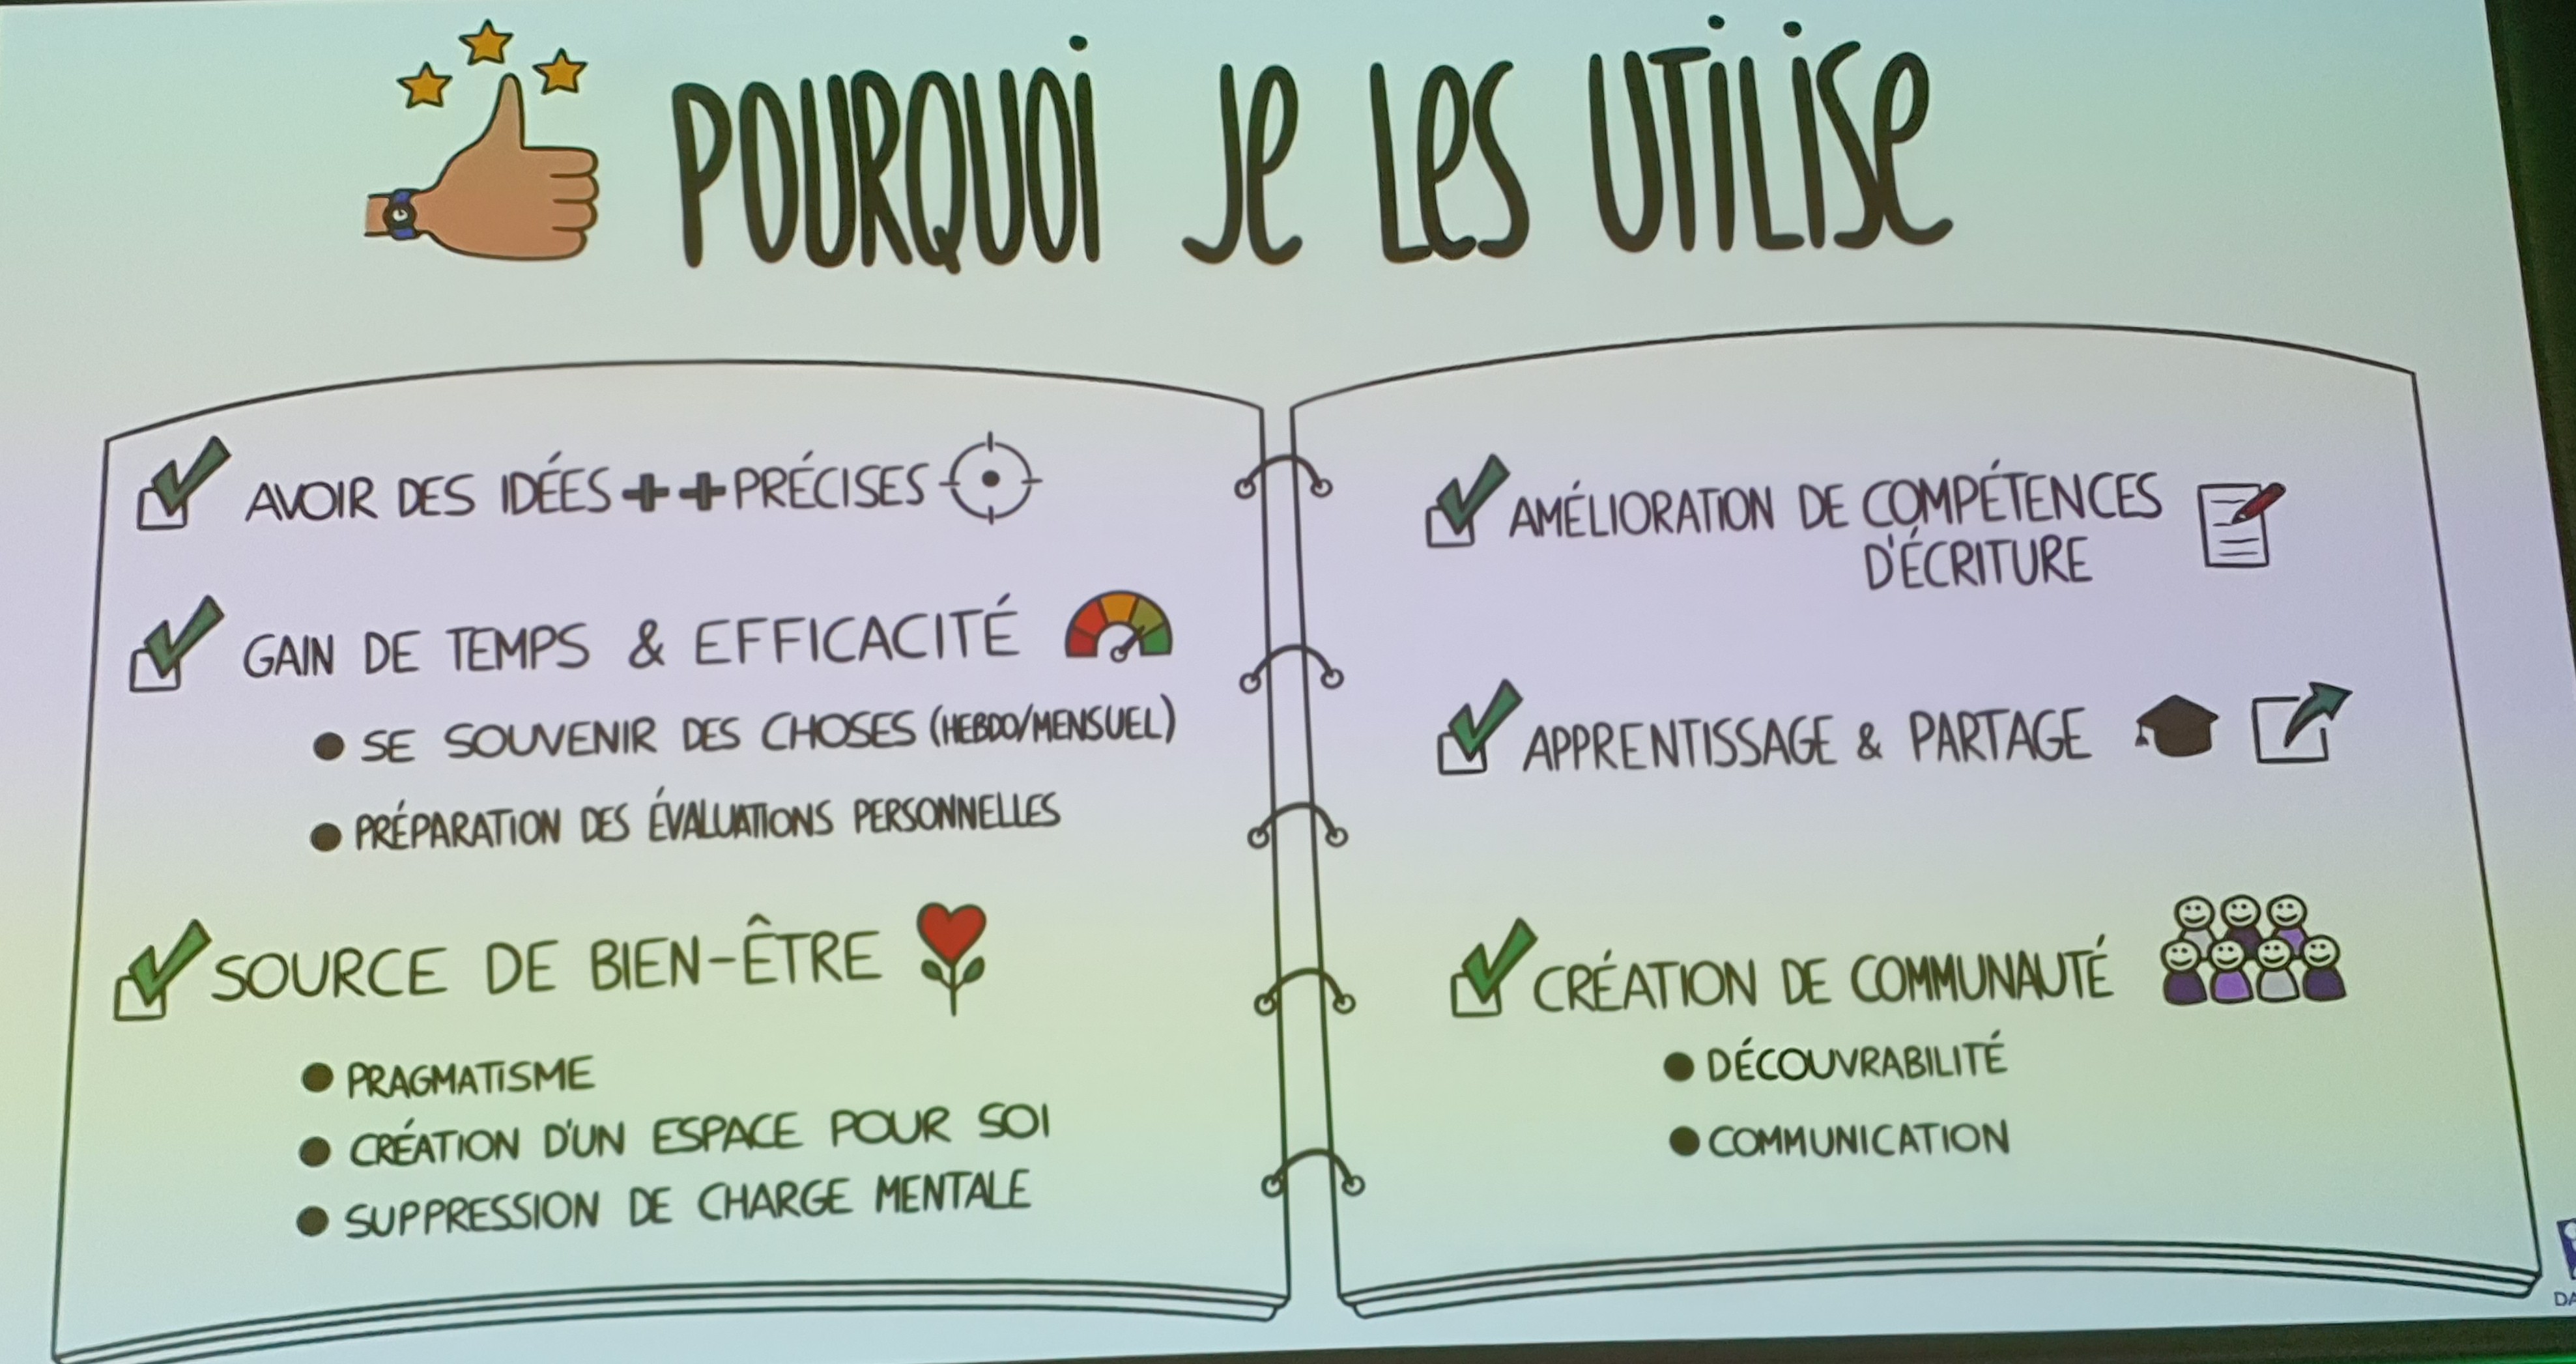 POURQUOI JE LES UTILISE
AVOIR DES IDÉES ++ PRÉCISES
GAIN DE TEMPS & EFFICACITÉ
● SE SOUVENIR DES CHOSES (HEBDO/MENSUEL)
● PRÉPARATION DES ÉVALUATIONS PERSONNELLES
SOURCE DE BIEN-ÊTRE
● PRAGMATISME
● CRÉATION D'UN ESPACE POUR SOI
● SUPPRESSION DE CHARGE MENTALE
AMÉLIORATION DE COMPÉTENCES
D'ÉCRITURE
APPRENTISSAGE & PARTAGE
CRÉATION DE COMMUNAUTÉ
● DÉCOUVRABILITÉ
● COMMUNICATION